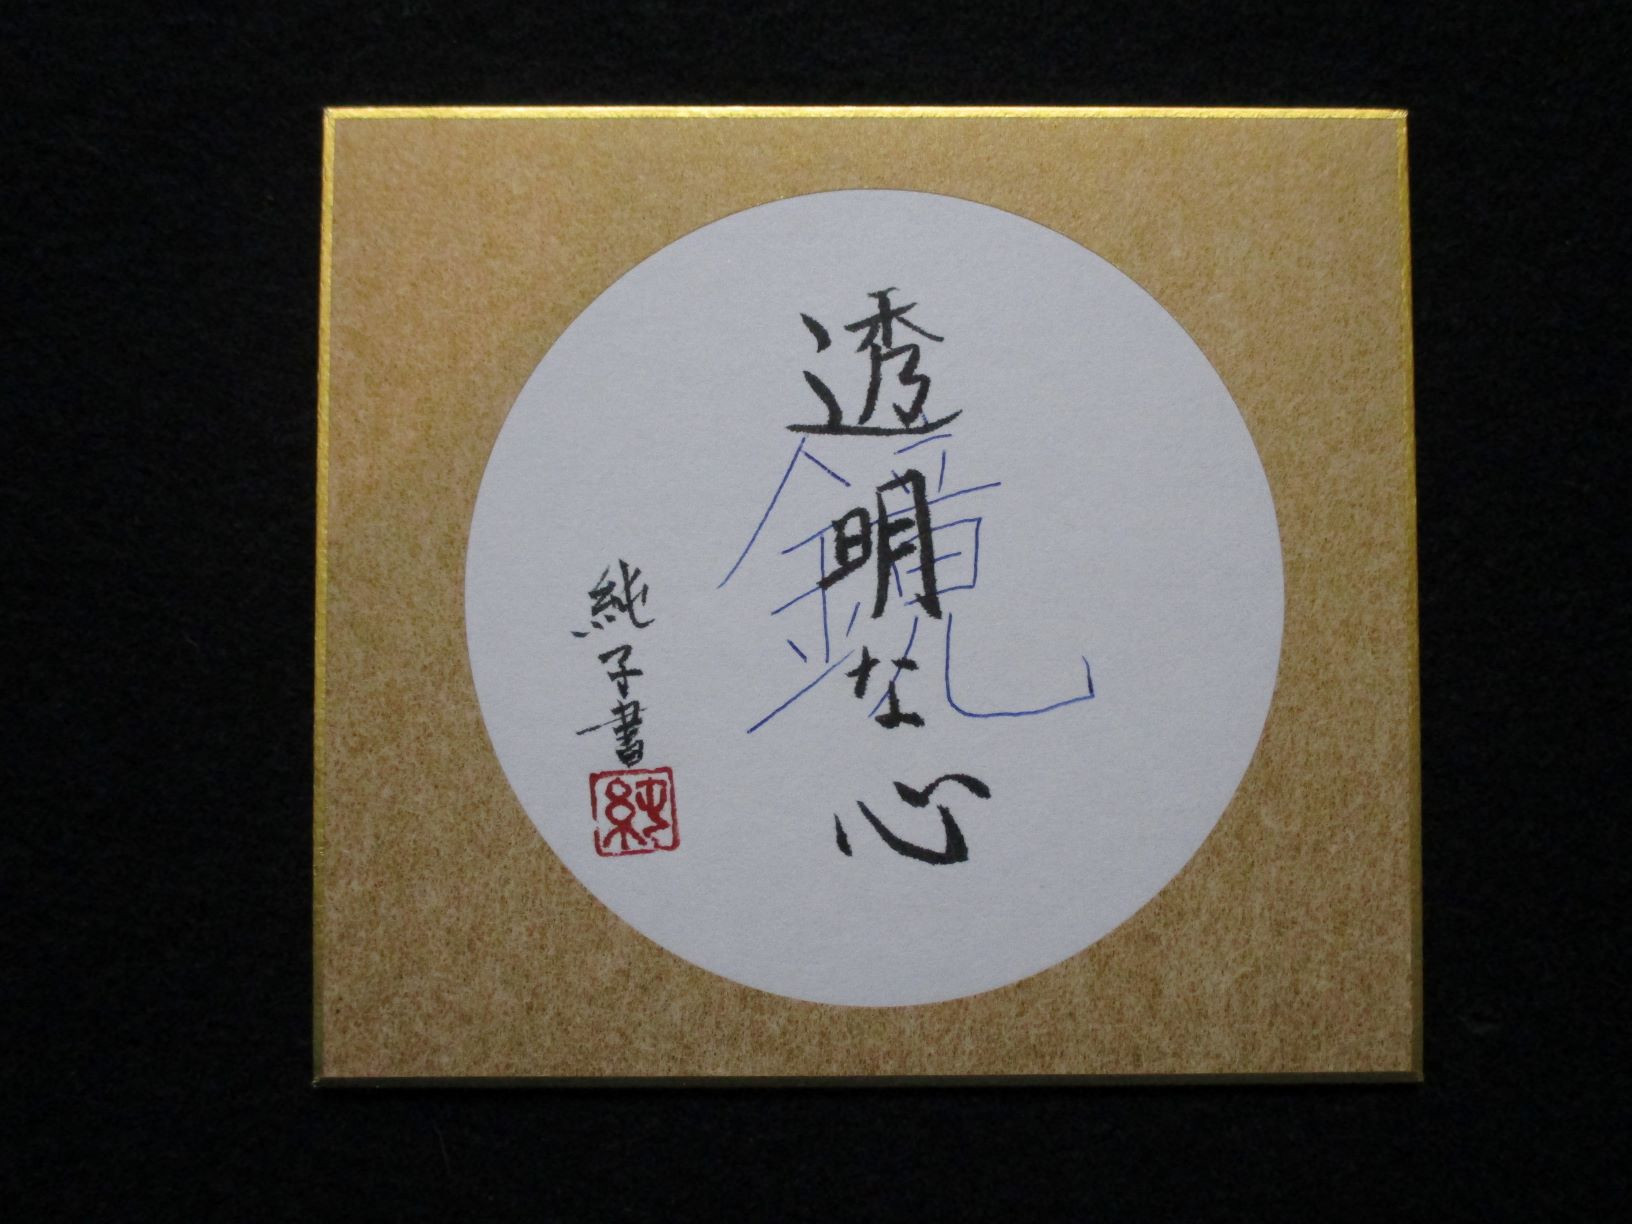 透明な心
鏡
純子書
純